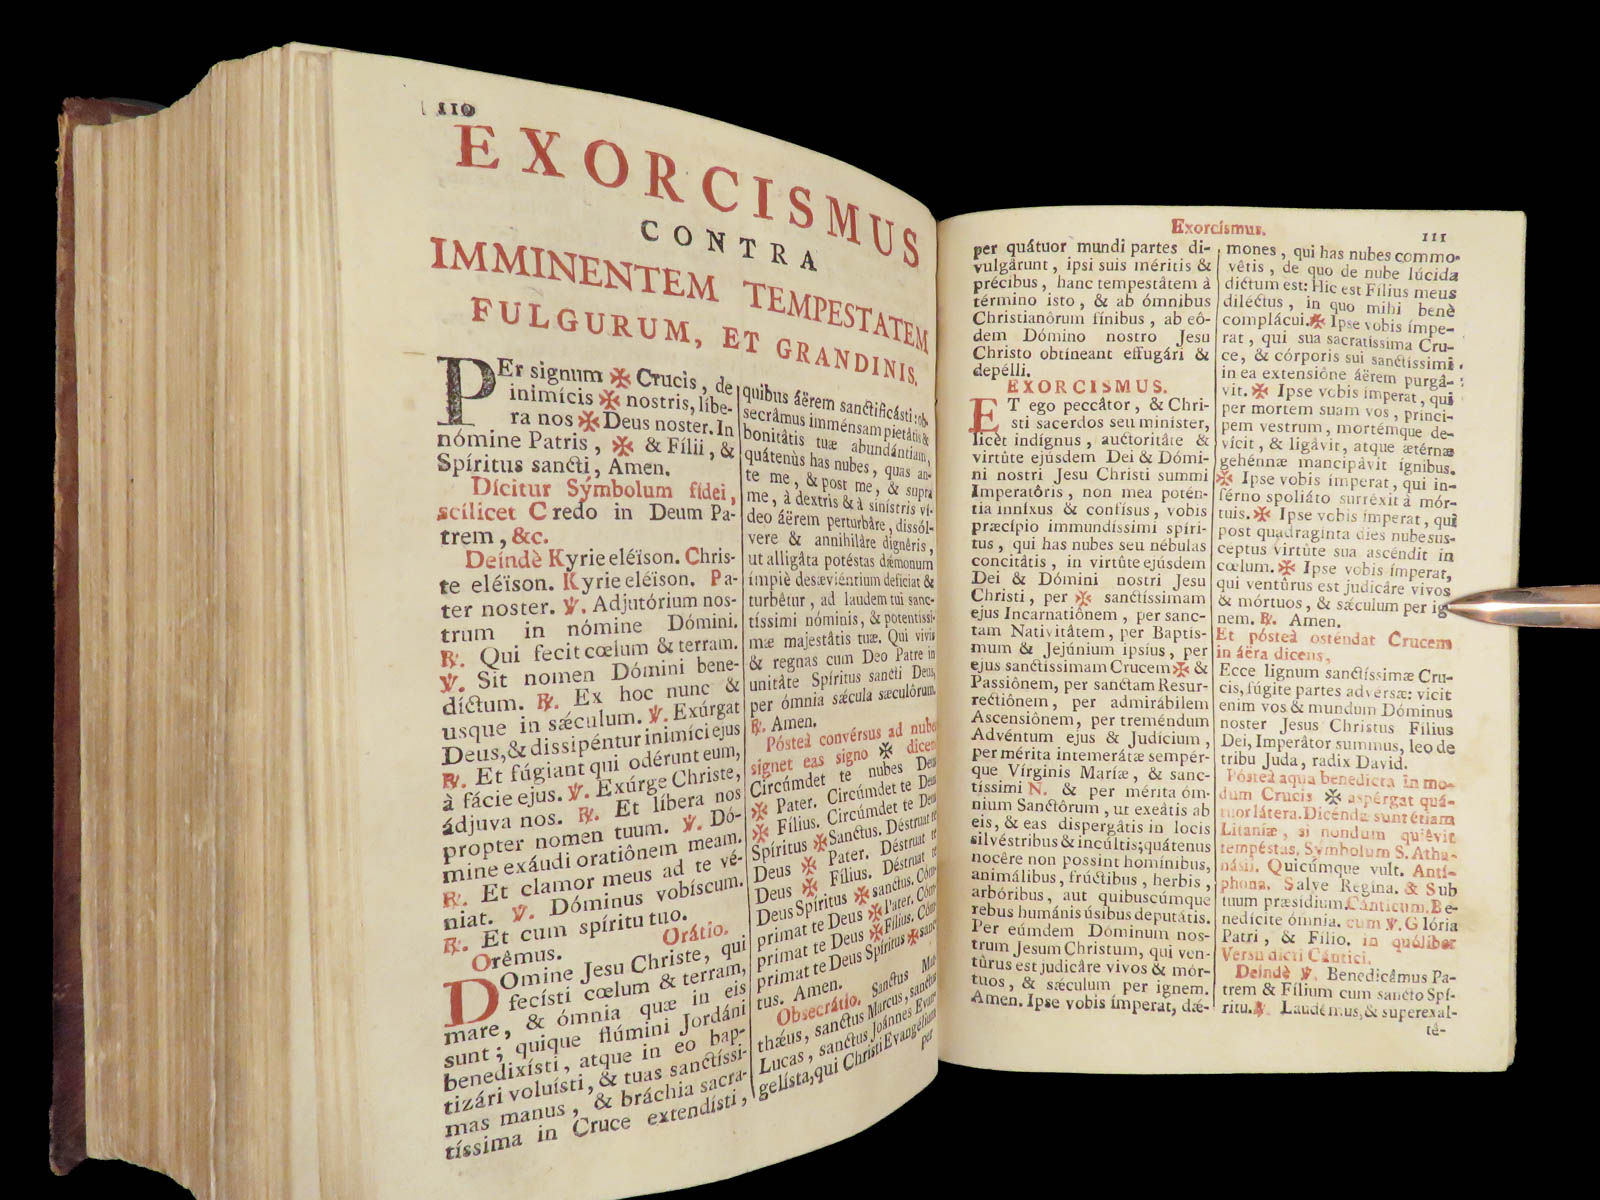 110
EXORCISMUS
CONTRA
IMMINENTEM TEMPESTATEM
FULGURUM, ET GRANDINIS.
PEr signum ✠ Crucis, de
inimícis ✠ nostris, líbe-
ra nos ✠ Deus noster. In
nómine Patris, ✠ & Fílii, &
Spíritus sancti, Amen.
Dícitur Sýmbolum fídei,
scílicet Credo in Deum Pa-
trem, &c.
Deíndè Kyrie eléïson. Chris-
te eléïson. Kyrie eléïson. Pa-
ter noster. ℣. Adjutórium nos-
trum in nómine Dómini.
℟. Qui fecit cœlum & terram.
℣. Sit nomen Dómini bene-
díctum. ℟. Ex hoc nunc &
usque in sǽculum. ℣. Exúrgat
Deus, & dissipéntur inimíci ejus
℟. Et fúgiant qui odérunt eum,
à fácie ejus. ℣. Exúrge Christe,
ádjuva nos. ℟. Et líbera nos
propter nomen tuum. ℣. Dó-
mine exáudi oratiônem meam.
℟. Et clamor meus ad te vé-
niat. ℣. Dóminus vobíscum.
℟. Et cum spíritu tuo.
Orêmus. Orátio.
DOmine Jesu Christe, qui
fecísti cœlum & terram,
mare, & ómnia quæ in eis
sunt; quique flúmini Jordáni
benedixísti, atque in eo bap-
tizári voluísti, & tuas sanctíssi-
mas manus, & bráchia sacra-
tíssima in Cruce extendísti,
quibus áërem sanctificásti: ob-
secrâmus imménsam pietâtis &
bonitâtis tuæ abundántiam,
quátenùs has nubes, quas an-
te me, & post me, & supra
me, à dextris & à sinístris ví-
deo áërem perturbâre, dissól-
vere & annihilâre dignêris,
ut alligâta potéstas dǽmonum
ímpiè desæviéntium defíciat &
turbêtur, ad laudem tui sanc-
tíssimi nóminis, & potentíssi-
mæ majestâtis tuæ. Qui vivis
& regnas cum Deo Patre in
unitâte Spíritus sancti Deus,
per ómnia sǽcula sæculôrum.
℟. Amen.
Pósteà convérsus ad nubes
signet eas signo ✠ dicens
Circúmdet te nubes Deus
✠ Pater. Circúmdet te Deus
✠ Fílius. Circúmdet te Deus
Spíritus ✠ Sanctus. Déstruat te
Deus ✠ Pater. Déstruat te
Deus ✠ Fílius. Déstruat te
Deus Spíritus ✠ sanctus. Cóm-
primat te Deus ✠ Pater. Cóm-
primat te Deus ✠ Fílius. Cóm-
primat te Deus Spíritus ✠ sanc-
tus. Amen.
Obsecrátio. Sanctus Mat-
thǽus, sanctus Marcus, sanctus
Lucas, sanctus Joánnes Evan-
gelísta, qui Christi Evangélium
per
Exorcísmus. 111
per quátuor mundi partes di-
vulgârunt, ipsi suis méritis &
précibus, hanc tempestâtem à
término isto, & ab ómnibus
Christianôrum fínibus, ab eô-
dem Dómino nostro Jesu
Christo obtíneant effugári &
depélli.
EXORCISMUS.
ET ego peccâtor, & Chri-
sti sacerdos seu miníster,
licèt indígnus, auctoritâte &
virtûte ejúsdem Dei & Dómi-
ni nostri Jesu Christi summi
Imperatôris, non mea potén-
tia inníxus & confísus, vobis
præcípio immundíssimi spíri-
tus, qui has nubes seu nébulas
concitâtis, in virtûte ejúsdem
Dei & Dómini nostri Jesu
Christi, per ✠ sanctíssimam
ejus Incarnatiônem, per sanc-
tam Nativitâtem, per Baptis-
mum & Jejúnium ipsíus, per
ejus sanctíssimam Crucem ✠ &
Passiônem, per sanctam Resur-
rectiônem, per admirábilem
Ascensiônem, per treméndum
Advéntum ejus & Judícium,
per mérita intemerátæ sempér-
que Vírginis Maríæ, & sanc-
tíssimi N. & per mérita óm-
nium Sanctôrum, ut exeâtis ab
eis, & eas dispergâtis in locis
silvéstribus & incúltis; quátenus
nocêre non possint homínibus,
animálibus, frúctibus, herbis,
arbóribus, aut quibuscúmque
rebus humánis úsibus deputâtis.
Per eúmdem Dóminum nos-
trum Jesum Christum, qui ven-
tûrus est judicâre vivos & mór-
tuos, & sǽculum per ignem.
Amen. Ipse vobis ímperat, dæ-
mones, qui has nubes commo-
vêtis, de quo de nube lúcida
dictum est: Hic est Fílius meus
diléctus, in quo mihi benè
complácui. ✠ Ipse vobis ímpe-
rat, qui sua sacratíssima Cru-
ce, & córporis sui sanctíssimi
in ea extensiône áërem purgâ-
vit. ✠ Ipse vobis ímperat, qui
per mortem suam vos, prínci-
pem vestrum, mortémque de-
vícit, & ligâvit, atque ætérnæ
gehénnæ mancipâvit ígnibus.
✠ Ipse vobis ímperat, qui in-
férno spoliáto surréxit à mór-
tuis. ✠ Ipse vobis ímperat, qui
post quadragínta dies nube sus-
ceptus virtûte sua ascéndit in
cœlum. ✠ Ipse vobis ímperat,
qui ventûrus est judicâre vivos
& mórtuos, & sǽculum per ig-
nem. ℟. Amen.
Et pósteà osténdat Crucem
in áëra dicens,
Ecce lignum sanctíssimæ Cru-
cis, fúgite partes advérsæ: vicit
enim vos & mundum Dóminus
noster Jesus Christus Fílius
Dei, Imperâtor summus, leo de
tribu Juda, radix David.
Pósteà aqua benedícta in mo-
dum Crucis ✠ aspérgat quá-
tuor látera. Dicénda sunt étiam
Litaníæ, si nondum quiêvit
tempéstas, Symbolum S. Atha-
násii. Quicúmque vult. Antí-
phona. Salve Regína. & Sub
tuum præsídium. Cánticum. Be-
nedícite ómnia. cum ℣. Glória
Patri, & Fílio. in quólibet
Versu dicti Cántici.
Deíndè ℣. Benedicâmus Pa-
trem & Fílium cum sancto Spí-
ritu. ℟. Laudêmus, & superexal-
tê-